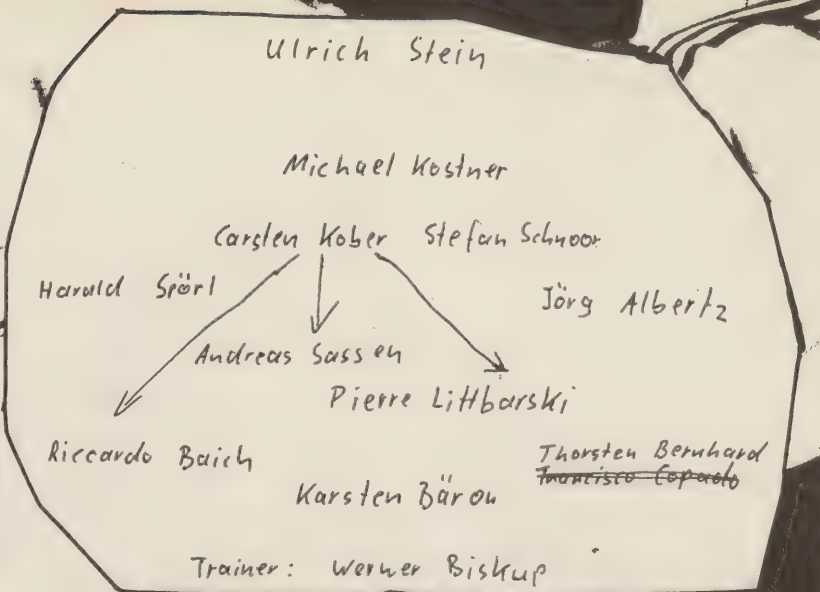 Ulrich Stein
Michael Kostner
Carsten Kober Stefan Schnoor
Harald Spörl Jörg Albertz
Andreas Sassen
Pierre Littbarski
Riccardo Baich Thorsten Bernhard
Francisco Copado
Karsten Bäron
Trainer: Werner Biskup